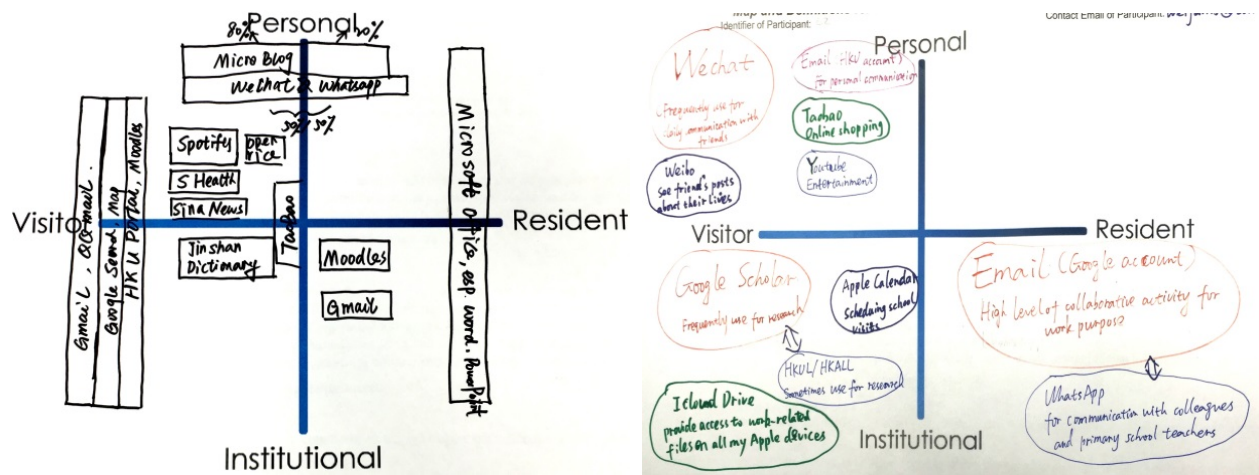 Personal
80%
20%
Micro Blog
WeChat & Whatsapp
50% 50%
Spotifes
Open
rice
S Health
Sina News
Visitor
Resident
TaoBao
Jinshan
Dictionary
Moodles
Gmail
Gmail, QQ mail.
Google Search. Map
HKU Portal, Moodles
Microsoft office, esp. word. PowerPoint
Institutional
Identifier of Participant:
Contact Email of Participant:
Personal
Wechat
Frequently use for
daily communication with
friends
Email (HKU account)
For personal communication
Taobao
Online shopping
Weibo
see friend's posts
about their lives
Youtube
Entertainment
Visitor
Resident
Google Scholar
Frequently use for research
Apple Calendar
scheduing school
visits
Email (Google account)
High level of collaborative activity for
work purpose
HKUL/HKALL
Sometimes use for research
Icloud Drive
provide access to work-related
files on all my Apple devices
WhatsApp
for communication with colleagues
and primary school teachers
Institutional